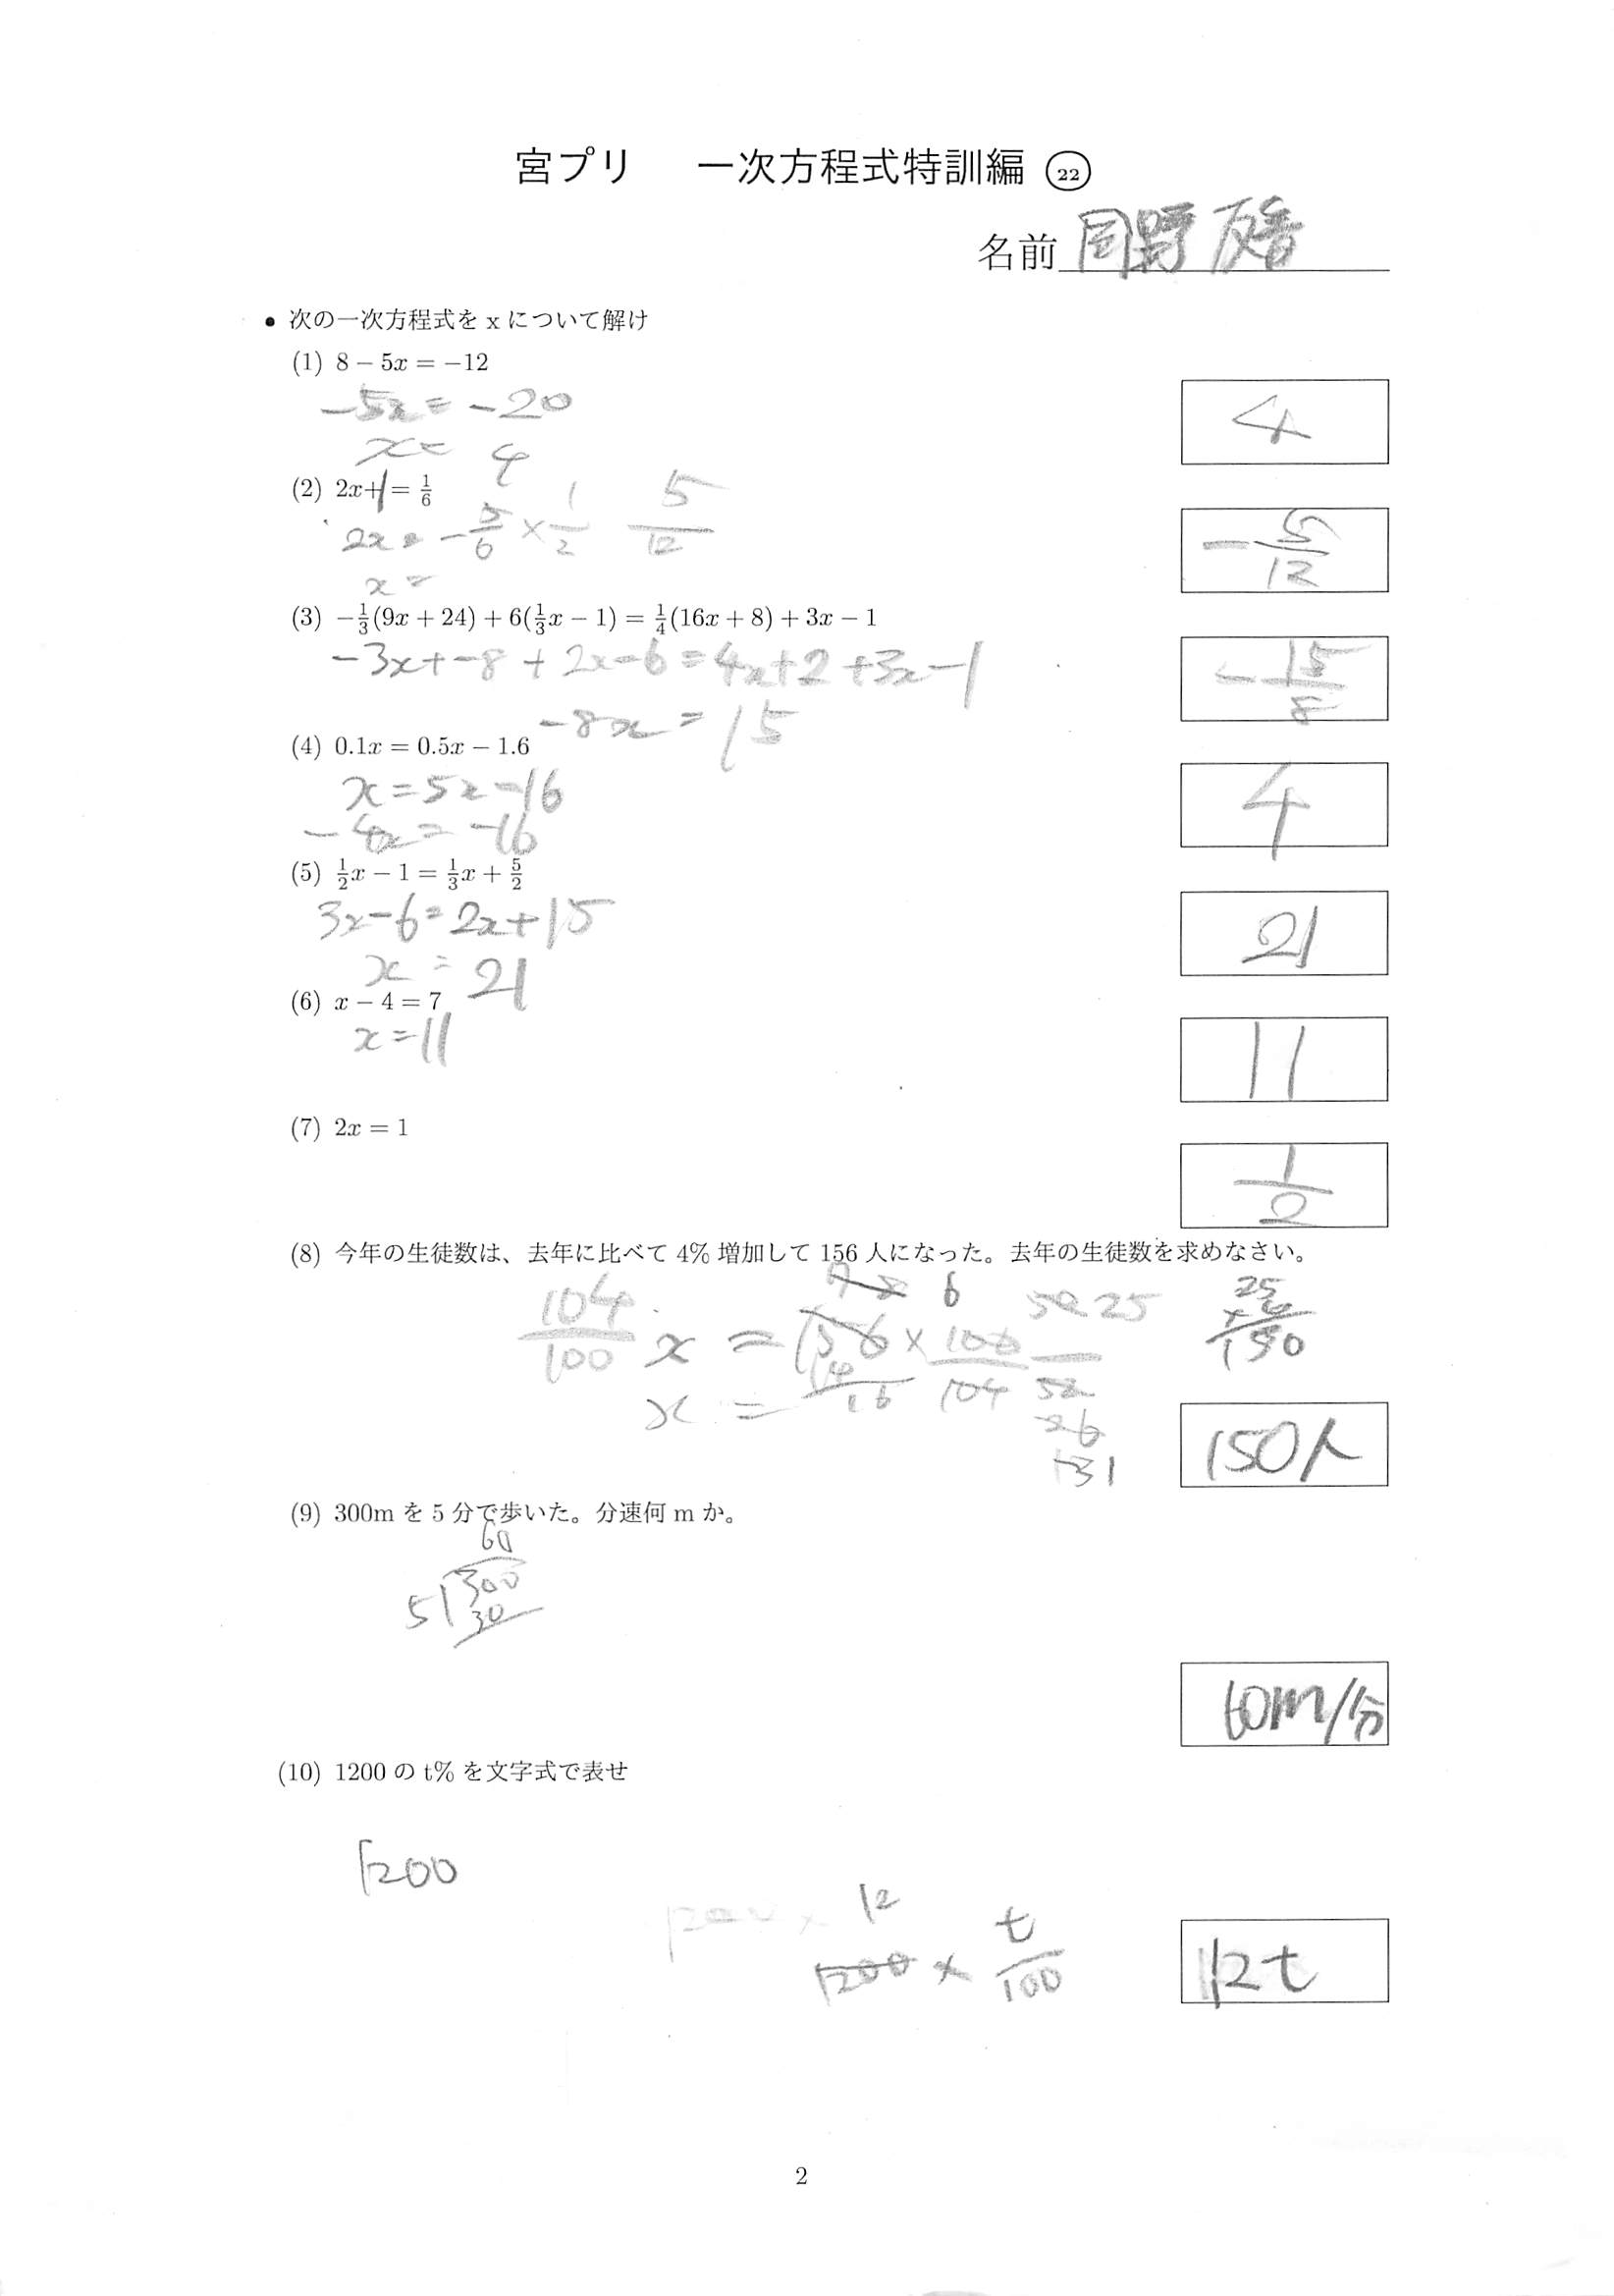 宮プリ 一次方程式特訓編 ㉒
名前
● 次の一次方程式を x について解け
(1) 8 − 5x = −12
−5x = −20
x = 4
4
(2) 2x+1 = 1/6
2x = −5/6 × 1/2 5/12
x =
−5/12
(3) −1/3(9x + 24) + 6(1/3x − 1) = 1/4(16x + 8) + 3x − 1
−3x+−8 + 2x−6 = 4x+2 +3x−1
−8x = 15
−15/8
(4) 0.1x = 0.5x − 1.6
x = 5x−16
−4x = −16
4
(5) 1/2x − 1 = 1/3x + 5/2
3x−6=2x+15
x = 21
21
(6) x − 4 = 7
x = 11
11
(7) 2x = 1
1/2
(8) 今年の生徒数は、去年に比べて 4% 増加して 156 人になった。去年の生徒数を求めなさい。
104/100 x = 156 × 100/104
x =
6
25
150
52
26
150人
(9) 300m を 5 分で歩いた。分速何 m か。
60
5)300
30
60m/分
(10) 1200 の t% を文字式で表せ
1200
12
1200 × t/100
12t
2